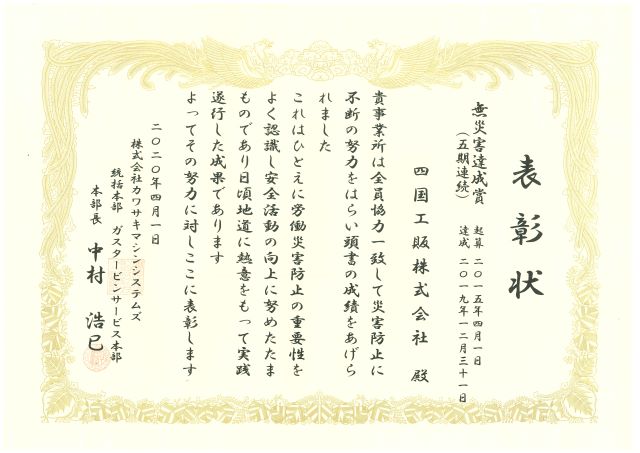 表彰状
無災害達成賞
(五期連続)
起算 二〇一五年四月一日
達成 二〇一九年一二月三十一日
四国工販株式会社 殿
貴事業所は全員協力一致して災害防止に
不断の努力をはらい頭書の成績をあげら
れました
これはひとえに労働災害防止の重要性を
よく認識し安全活動の向上に努めたたま
ものであり日頃地道に熱意をもって実践
遂行した成果であります
よってその努力に対しここに表彰します
二〇二〇年四月一日
株式会社カワサキマシンシステムズ
統括本部 ガスタービンサービス本部
本部長 中村 浩巳